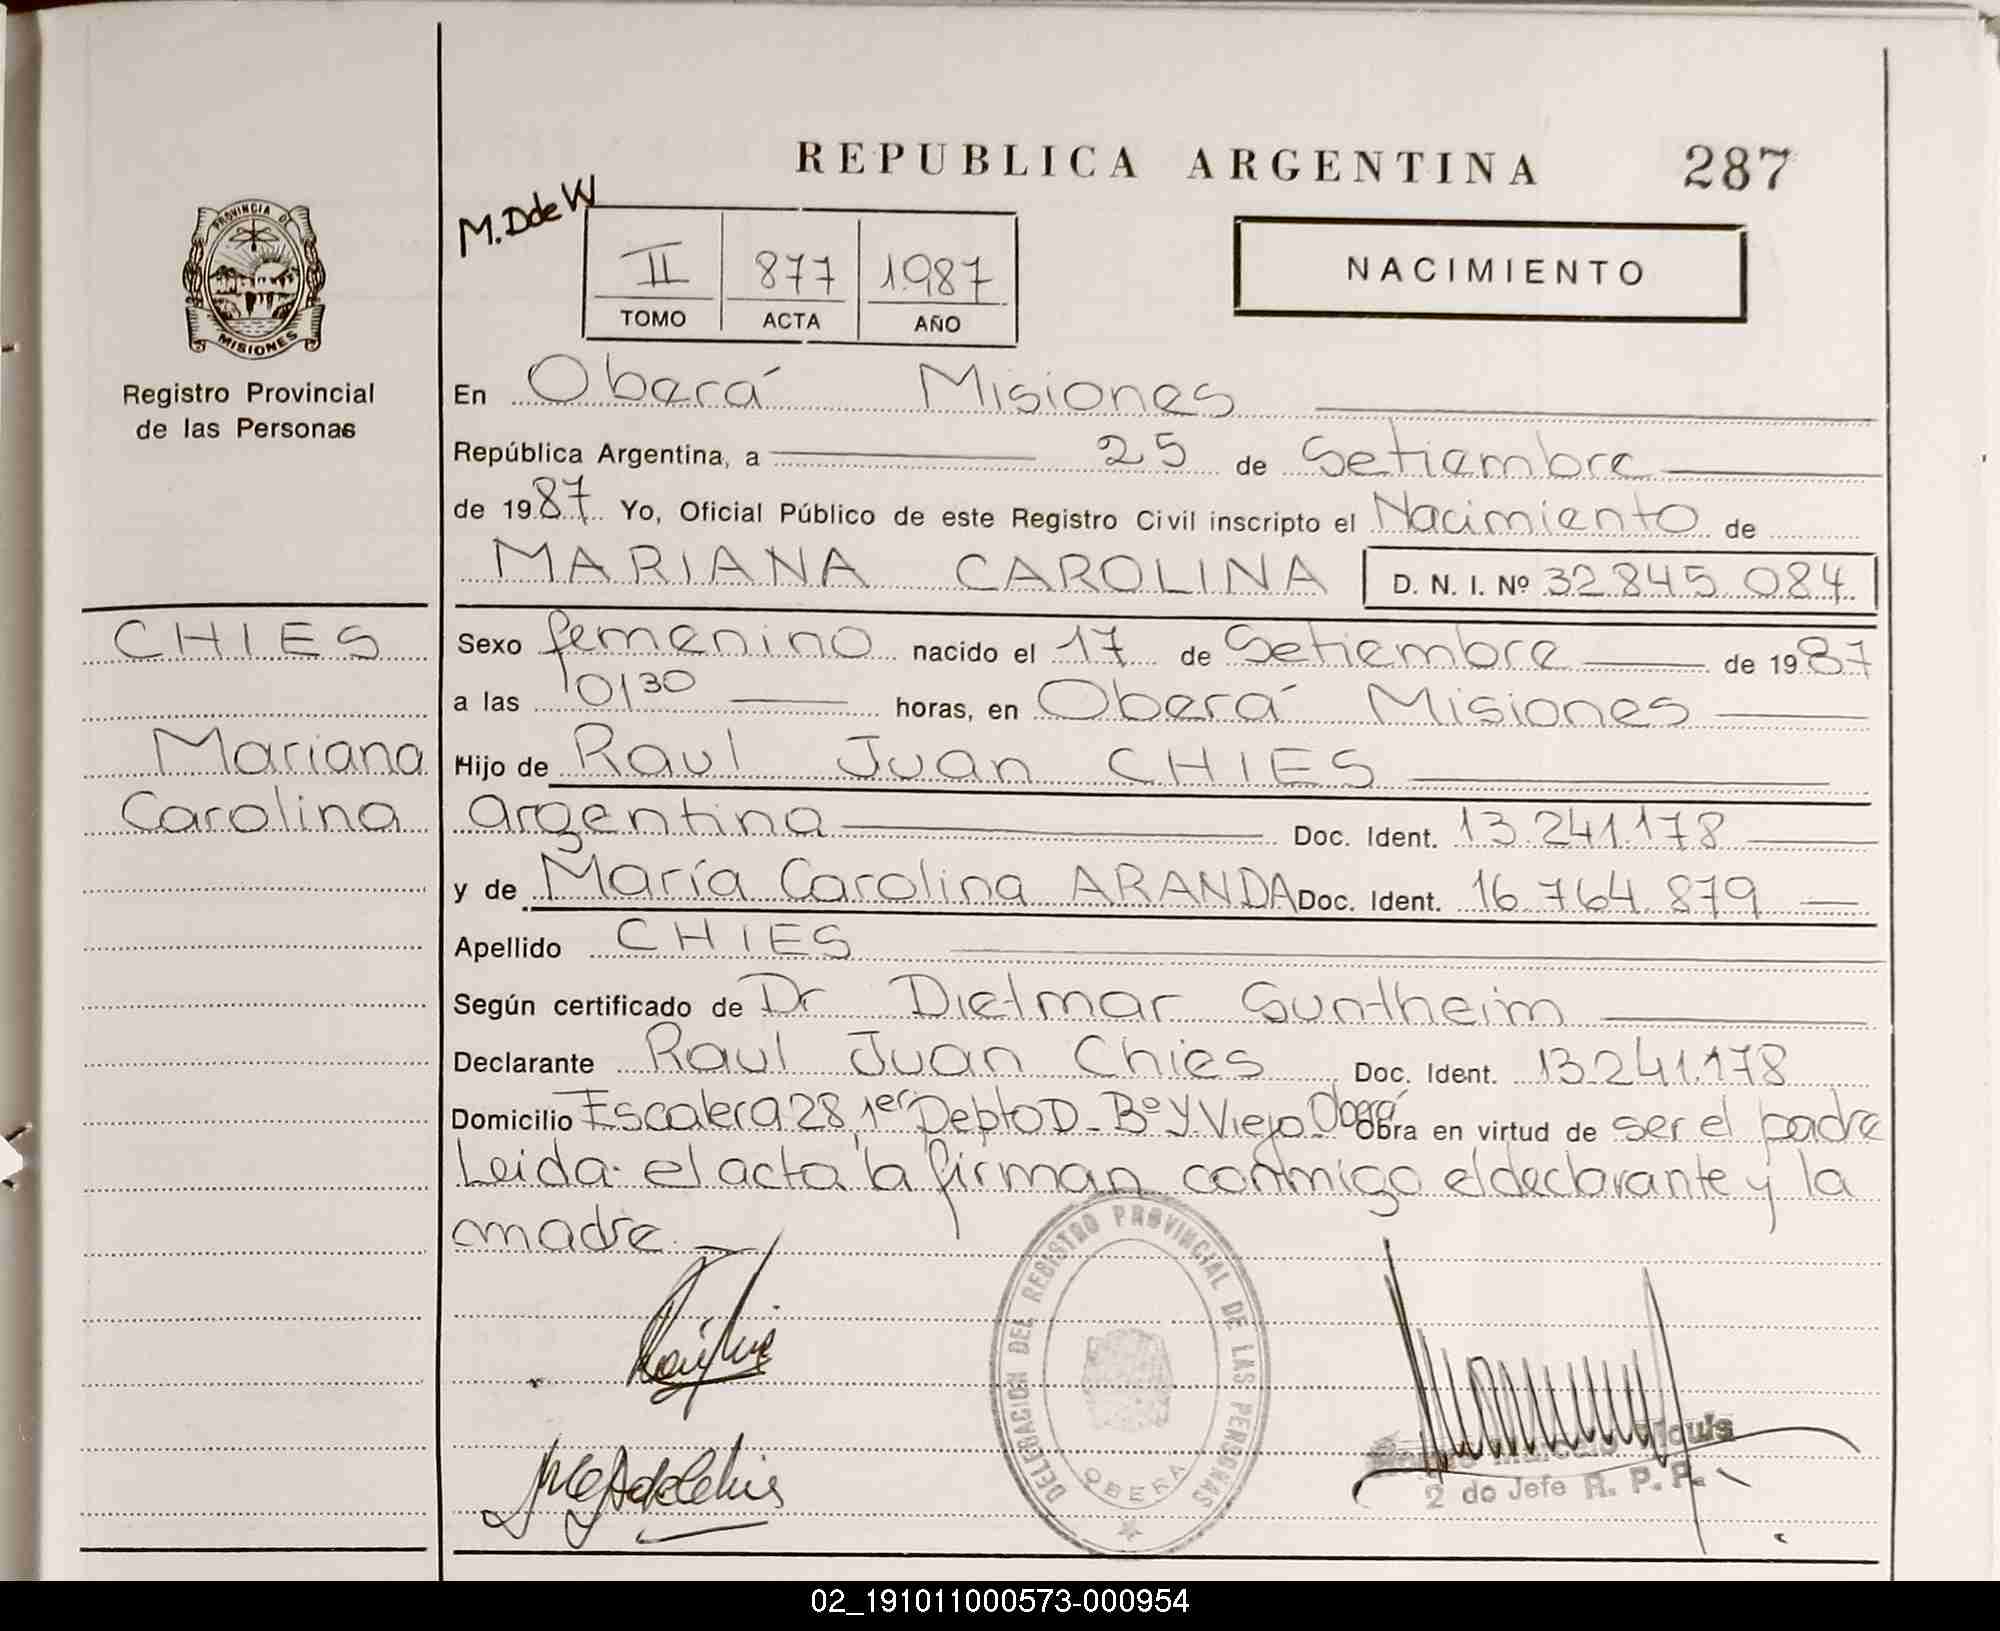 REPUBLICA ARGENTINA 287
M. D de W
II 877 1987
TOMO ACTA AÑO
NACIMIENTO
PROVINCIA DE
MISIONES
Registro Provincial
de las Personas
En Oberá Misiones
República Argentina, a 25 de Setiembre
de 1987 Yo, Oficial Público de este Registro Civil inscripto el Nacimiento de
MARIANA CAROLINA D. N. I. Nº 32.845.084
CHIES
Mariana
Carolina
Sexo femenino nacido el 17 de Setiembre de 1987
a las 0130 horas, en Oberá Misiones
Hijo de Raul Juan CHIES
argentina Doc. Ident. 13.241.178
y de María Carolina ARANDA Doc. Ident. 16.764.879
Apellido CHIES
Según certificado de Dr Dietmar Suntheim
Declarante Raul Juan Chies Doc. Ident. 13.241.178
Domicilio Escalera 28 1er Depto D - Bº Y. Viejo Oberá Obra en virtud de ser el padre
Leida el acta la firman conmigo el declarante y la
madre
DELEGACION DEL REGISTRO PROVINCIAL DE LAS PERSONAS
OBERA
2 do Jefe R. P. P.
02_191011000573-000954